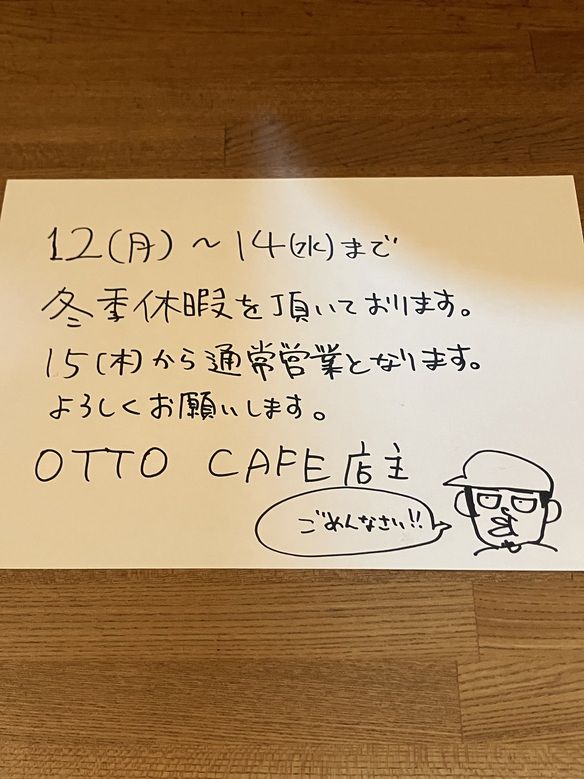 12(月)〜14(水)まで
冬季休暇を頂いております。
15(木)から通常営業となります。
よろしくお願いします。
OTTO CAFE店主
ごめんなさい!!